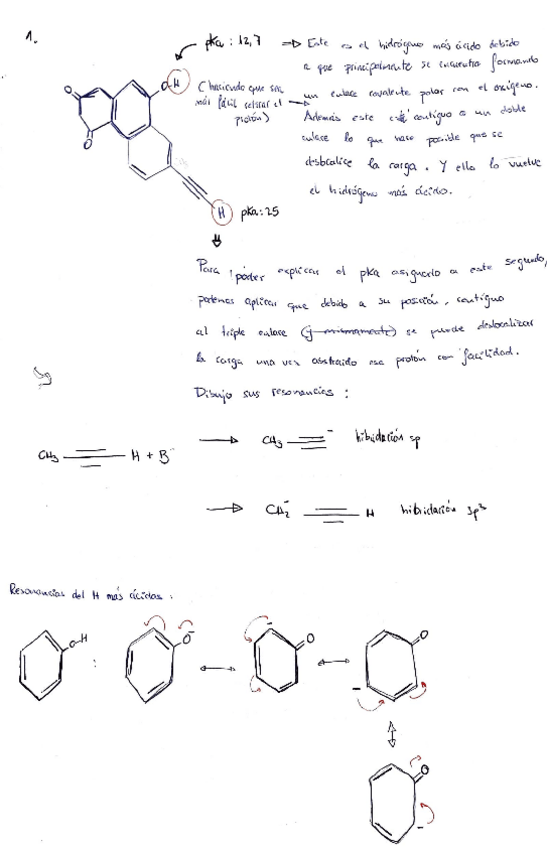 1.
pKa: 12,7 ⇒ Este es el hidrógeno más ácido debido
a que principalmente se encuentra formando
(haciendo que sea un enlace covalente polar con el oxígeno.
más fácil extraer el protón) Además este esté contiguo a un doble
enlace lo que hace posible que se
deslocalice la carga. Y ello lo vuelve
el hidrógeno más ácido.
O
O
O H
H pKa: 25
Para poder explicar el pKa asignado a este segundo,
podemos aplicar que debido a su posición, contiguo
al triple enlace se puede deslocalizar
la carga una vez abstraido ese protón con facilidad.
Dibujo sus resonancias:
CH₃ ≡ H + B⁻ → CH₃ ≡ ⁻ hibridación sp
→ CH₂⁻ ≡ H hibridación sp³
Resonancias del H más ácidos:
O-H : O⁻ ↔ O ↔ O
O